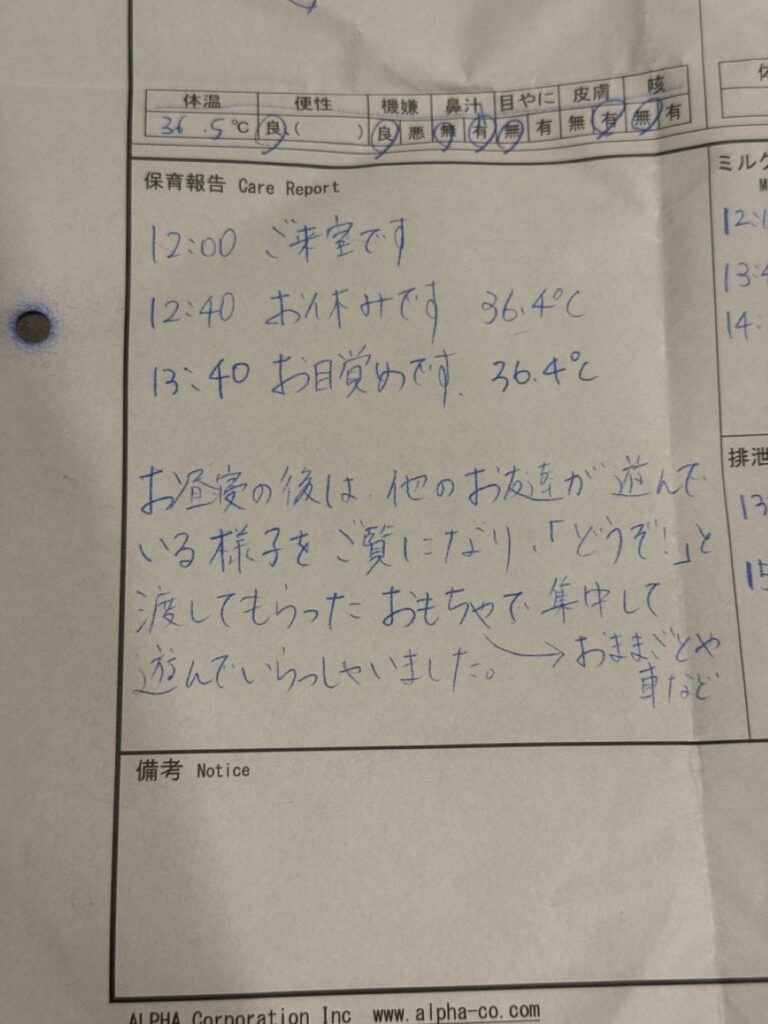 体温 便性 機嫌 鼻汁 目やに 皮膚 咳
36.5℃ 良(　　) 良 悪 無 有 無 有 無 有 無 有
保育報告 Care Report
12:00 ご来室です
12:40 お休みです 36.4℃
13:40 お目覚めです. 36.4℃
お昼寝の後は、他のお友達が遊んで
いる様子をご覧になり、「どうぞ!」と
渡してもらったおもちゃで集中して
遊んでいらっしゃいました。→おままごとや
車など
備考 Notice
ALPHA Corporation Inc www.alpha-co.com
ミルク
13:4
14:
排泄
13
15